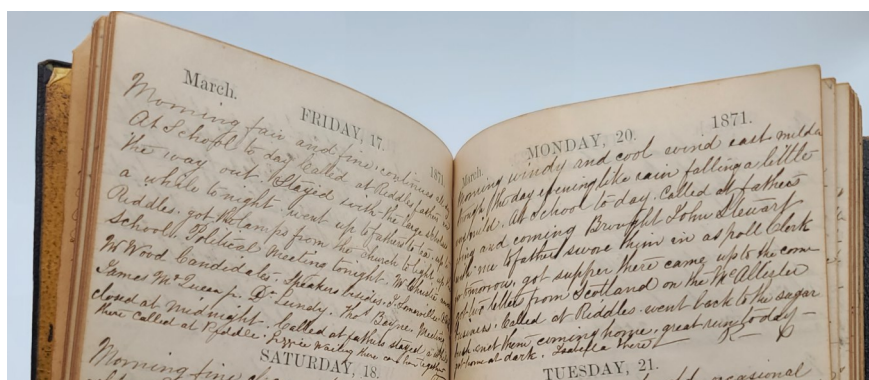 March.
FRIDAY, 17.
1871.
Morning fair and fine, continues all
At School to day Called at Riddles fathers on
the way out Stayed with the large scholars
a while tonight. went up to fathers to tea, up to
Riddles. got the lamps from the church to light up
School. Political Meeting tonight. W. Christie
W Wood Candidates. Speakers besides J. Somerville
James McQueen jr. Dr Lundy. Thos Bayne. Meeting
closed at midnight. Called at fathers stayed a while
there called at Riddles. Lizzie waiting there came home together
SATURDAY, 18.
Morning fine
March.
MONDAY, 20.
1871.
Morning windy and cool wind east milder
through the day evening like rain falling a little
and mild. At School to day. Called at fathers
going and coming Brought John Stewart
with me to fathers swore him in as poll Clerk
for tomorrow, got supper there came up to the corn
got two letters from Scotland on the McAllister
business. Called at Riddles. went back to the sugar
bush met them coming home, great run to day
got home at dark. Isabella here
TUESDAY, 21.
occasional